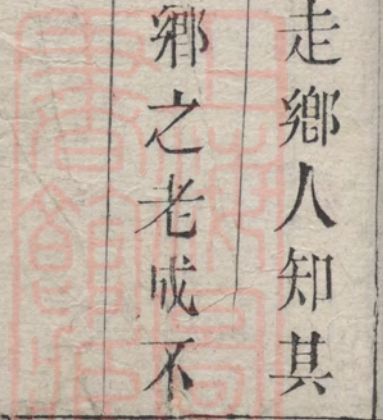 走鄉人知其
鄉之老成不